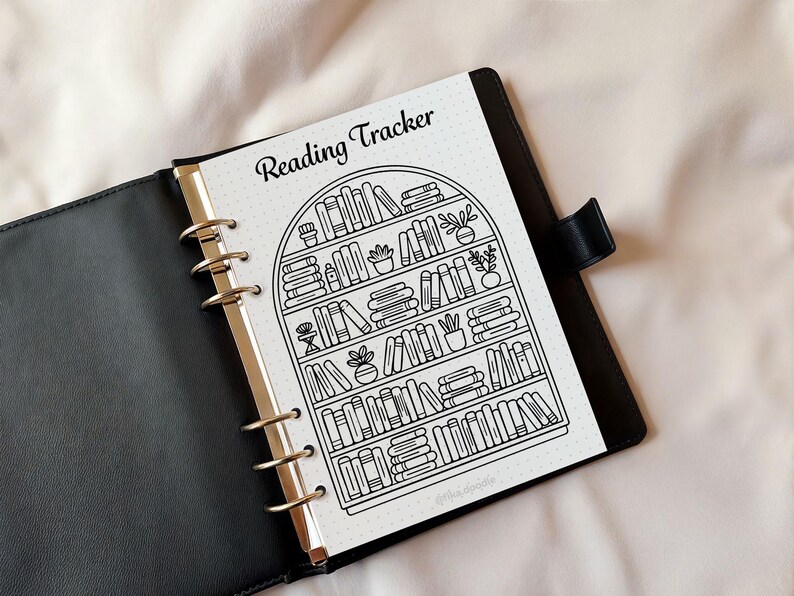 Reading Tracker
@fika.doodle